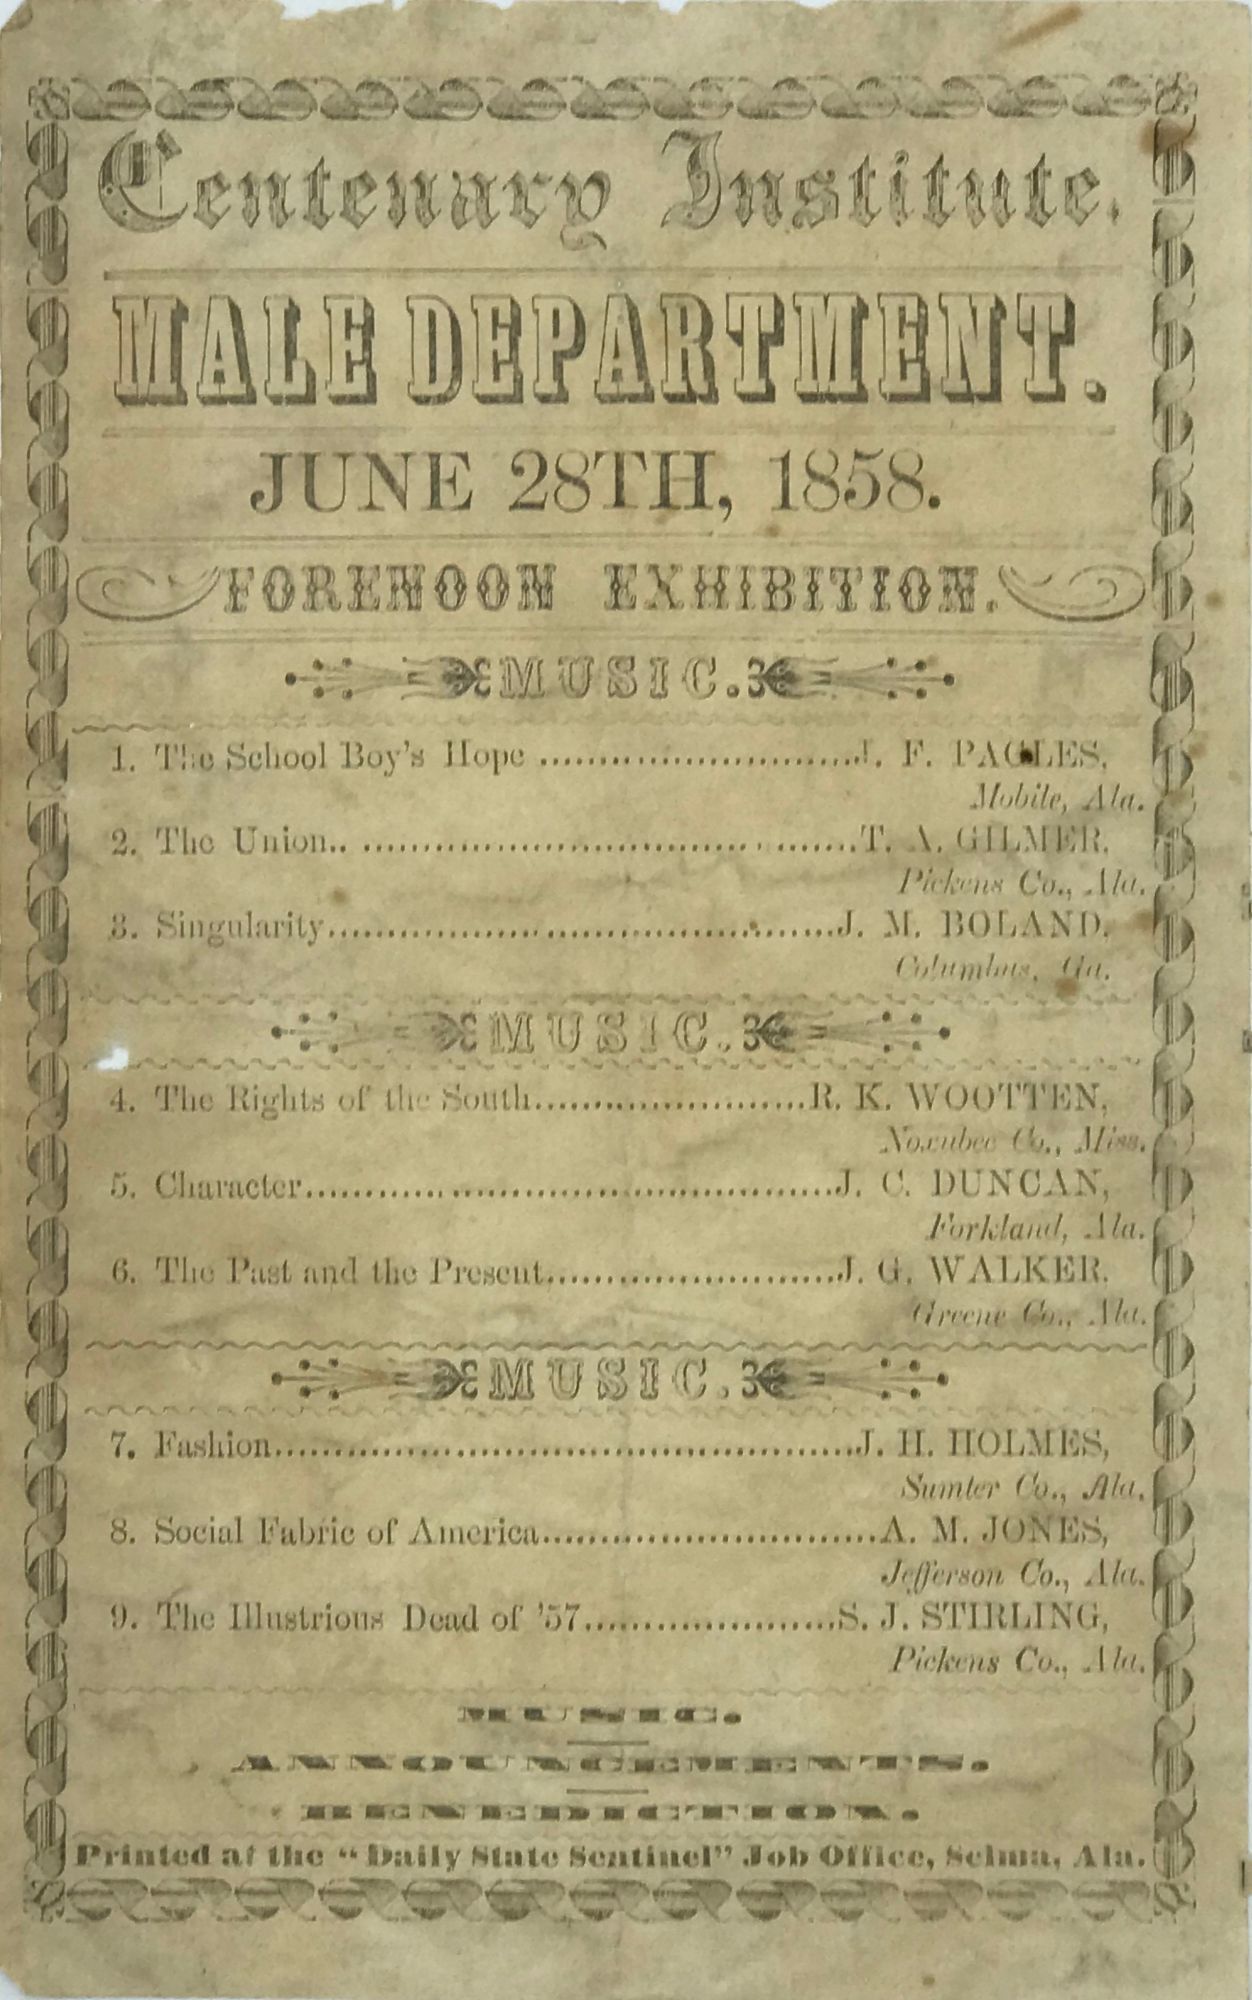 Centenary Institute.
MALE DEPARTMENT.
JUNE 28TH, 1858.
FORENOON EXHIBITION.
MUSIC.
1. The School Boy's Hope ..........................J. F. PAGLES,
Mobile, Ala.
2. The Union.. .........................................T. A. GILMER,
Pickens Co., Ala.
3. Singularity..........................................J. M. BOLAND,
Columbus, Ga.
MUSIC.
4. The Rights of the South.......................R. K. WOOTTEN,
Noxubee Co., Miss.
5. Character............................................J. C. DUNCAN,
Forkland, Ala.
6. The Past and the Present........................J. G. WALKER,
Greene Co., Ala.
MUSIC.
7. Fashion................................................J. H. HOLMES,
Sumter Co., Ala.
8. Social Fabric of America............................A. M. JONES,
Jefferson Co., Ala.
9. The Illustrious Dead of '57.....................S. J. STIRLING,
Pickens Co., Ala.
MUSIC.
ANNOUNCEMENTS.
BENEDICTION.
Printed at the "Daily State Sentinel" Job Office, Selma, Ala.